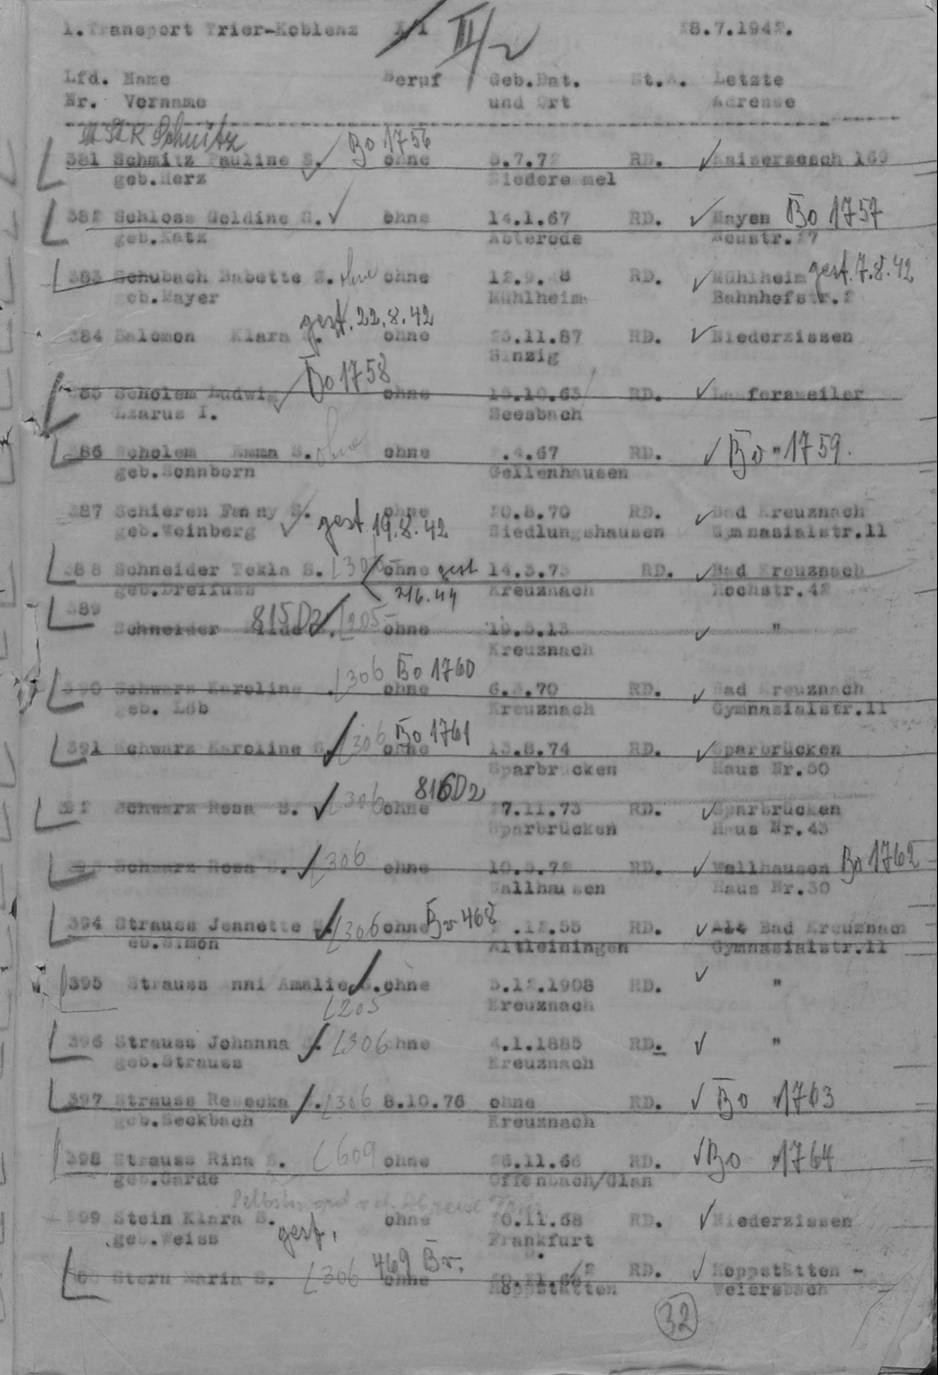 1.Transport Trier-Koblenz III/2 28.7.1942.
Lfd. Name Beruf Geb.Dat. St.A. Letzte
Nr. Vorname und Ort Adresse
Schmitz Bo 1756
381 Schmitz Pauline S. ohne 5.7.7 RD. Kaisersesch 169
geb.Herz
382 Schloss Goldine S. ohne 14.1.67 RD. Mayen Bo 1757
geb.Katz Abterode Neustr.
383 Schubach Babette S. ohne RD. Mühlheim gest. 7.8.42
geb.Mayer Mühlheim Bahnhofstr.
gest. 22.8.42
384 Salomon Klara ohne 25.11.87 RD. Niederzissen
Sinzig
Bo 1758
385 Scholem Ludwig ohne RD. Laufersweiler
Lzarus I. Seesbach
386 Scholem Emma S. ohne .4.67 RD. Bo 1759.
geb.Sonnborn Gellenhausen
387 Schieren Fanny S. ohne 20.8.70 RD. Bad Kreuznach
geb.Weinberg gest. 19.8.42 Siedlungshausen Gymnasialstr.11
388 Schneider Tekla S. ohne gest 14.3.7 RD. Bad Kreuznach
geb.Dreifuss Kreuznach Hochstr.42
389
Schneider 815 D2 L205 ohne 19.5.13 "
Kreuznach
390 Schwarz Karoline L306 Bo 1760 ohne 6.3.70 RD. Bad Kreuznach
geb. Löb Kreuznach Gymnasialstr.11
391 Schwarz Karoline S. L306 Bo 1761 ohne 13.8.74 RD. Sparbrücken
Sparbrücken Haus Nr.50
816 D2
Schwarz Rosa S. L306 ohne 7.11.73 RD. Sparbrücken
Sparbrücken Haus Nr.43
Schwarz Rosa S. L306 ohne 10.5.72 RD. Wallhausen Bo 1762
Wallhausen Haus Nr.30
394 Strauss Jennette L306 ohne Bo 468 .12.55 RD. Alt Bad Kreuznach
geb.Simon Altleiningen Gymnasialstr.11
395 Strauss Anni Amalie S. ohne 5.12.1908 RD. "
L205 Kreuznach
396 Strauss Johanna L306 ohne 4.1.1885 RD. "
geb.Strauss Kreuznach
397 Strauss Rebecka S. L306 8.10.76 ohne RD. Bo 1763
geb.Seckbach Kreuznach
398 Strauss Rina S. L609 ohne 26.11.66 RD. Bo 1764
geb.Garde Offenbach/Glan
Selbstmord
399 Stein Klara S. ohne 20.11.68 RD. Niederzissen
geb.Weiss gest. Frankfurt
Stern Maria S. L306 469 Bo. ohne RD. Hoppstätten -
Hoppstätten Weiersbach
32